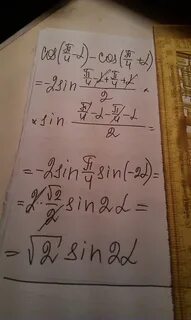 cos(π/4 - α) - cos(π/4 + α)
= -2 sin (π/4 - α + π/4 + α)/2 ×
× sin (π/4 - α - π/4 - α)/2 =
= -2 sin π/4 sin(-2α) =
= 2 · √2/2 sin 2α =
= √2 sin 2α